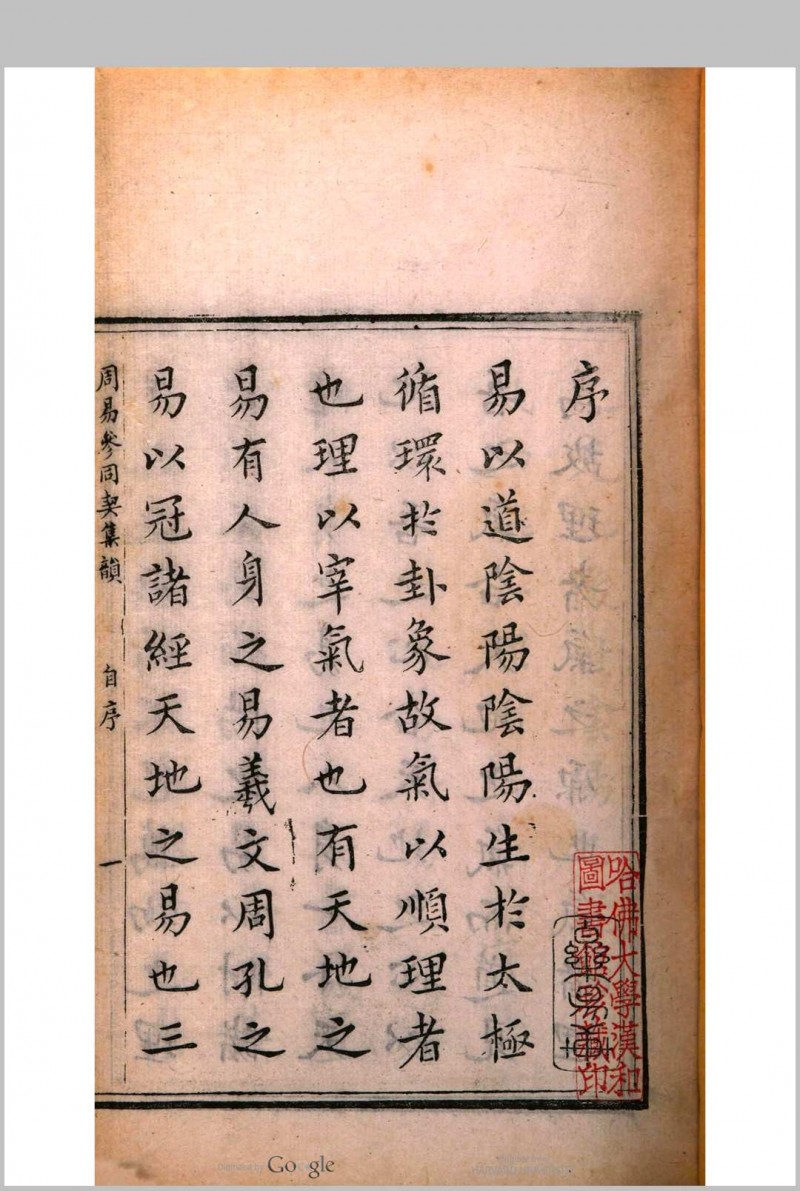 序
易以道陰陽陰陽生於太極
循環於卦象故氣以順理者
也理以宰氣者也有天地之
易有人身之易羲文周孔之
易以冠諸經天地之易也三
周易參同契集韻 自序 一
哈佛大學漢和
圖書館珍藏印
Google